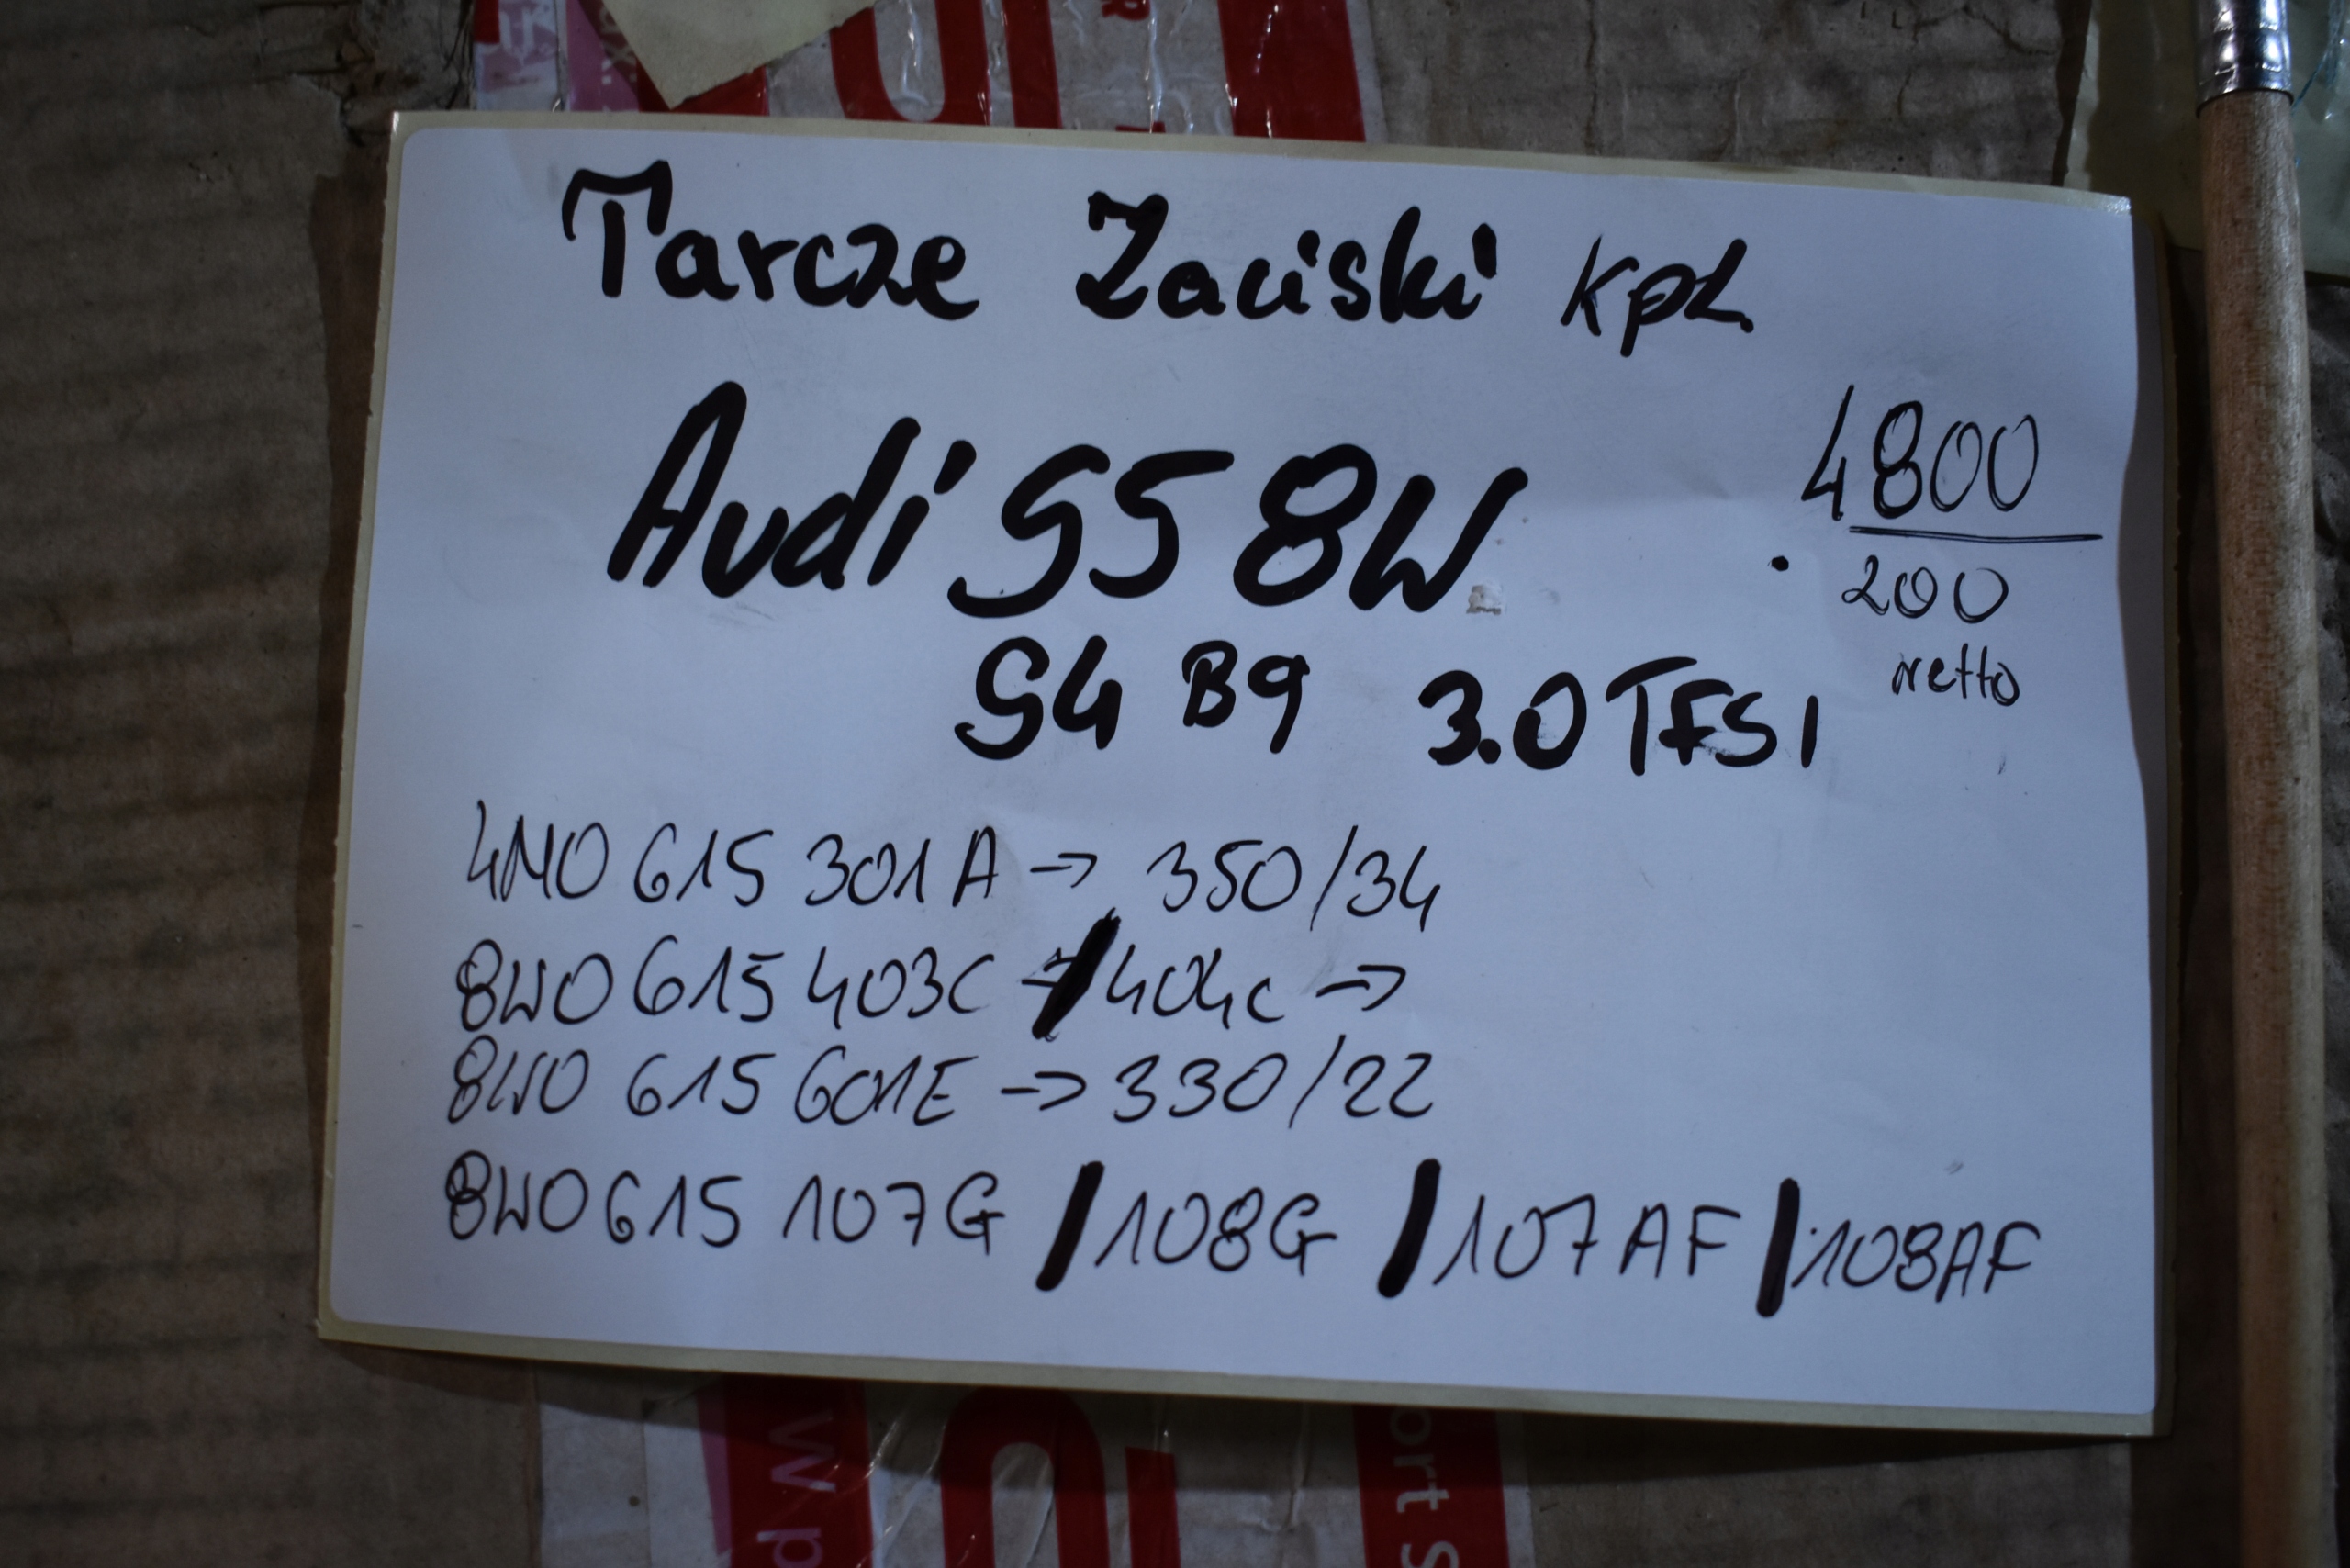 Tarcze Zaciski kpł.
Audi S5 8W
4800
200
netto
S4 B9 3.0 TFSI
4M0 615 301 A → 350/34
8W0 615 403C / 404C →
8W0 615 601E → 330/22
8W0 615 107G / 108G / 107AF / 108AF
w p
ort S